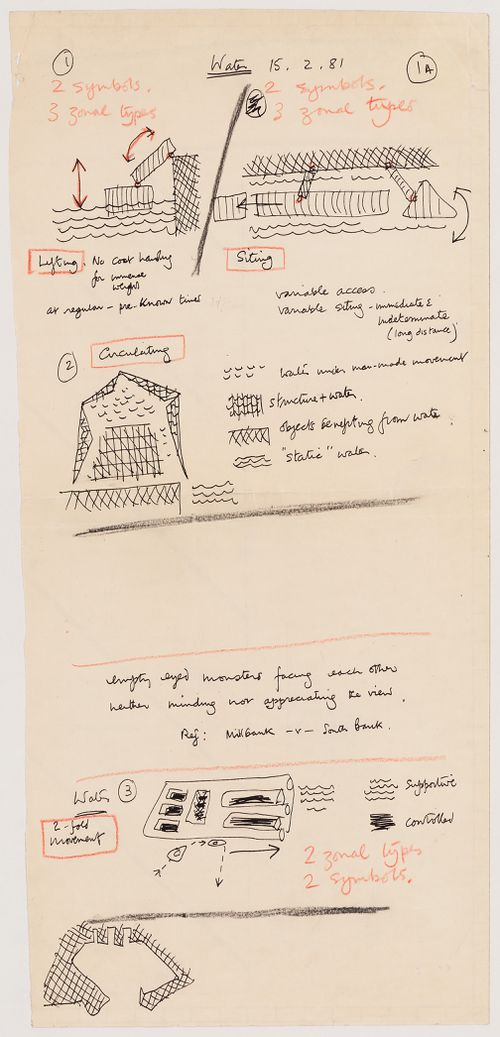 1
Water 15. 2. 81
1A
2 symbols.
3 zonal types
2 symbols.
3 zonal types
Lifting. No cost handling
for immense
weight
at regular - pre-known times
Siting
variable access.
variable siting - immediate &
indeterminate
(long distance)
2
Circulating
water under man-made movement
structure + water.
objects benefiting from water.
"static" water.
empty eyed monsters facing each other
neither minding nor appreciating the view.
Ref: Millbank -v- South bank.
Water 3
2-fold
movement
Supportive
controlled
2 zonal types
2 symbols.